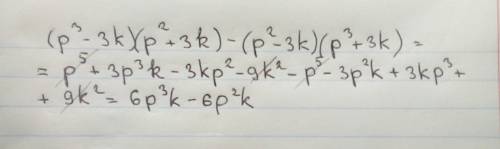 (p³ - 3k)(p² + 3k) - (p² - 3k)(p³ + 3k) =
= p⁵ + 3p³k - 3kp² - 9k² - p⁵ - 3p²k + 3kp³ +
+ 9k² = 6p³k - 6p²k